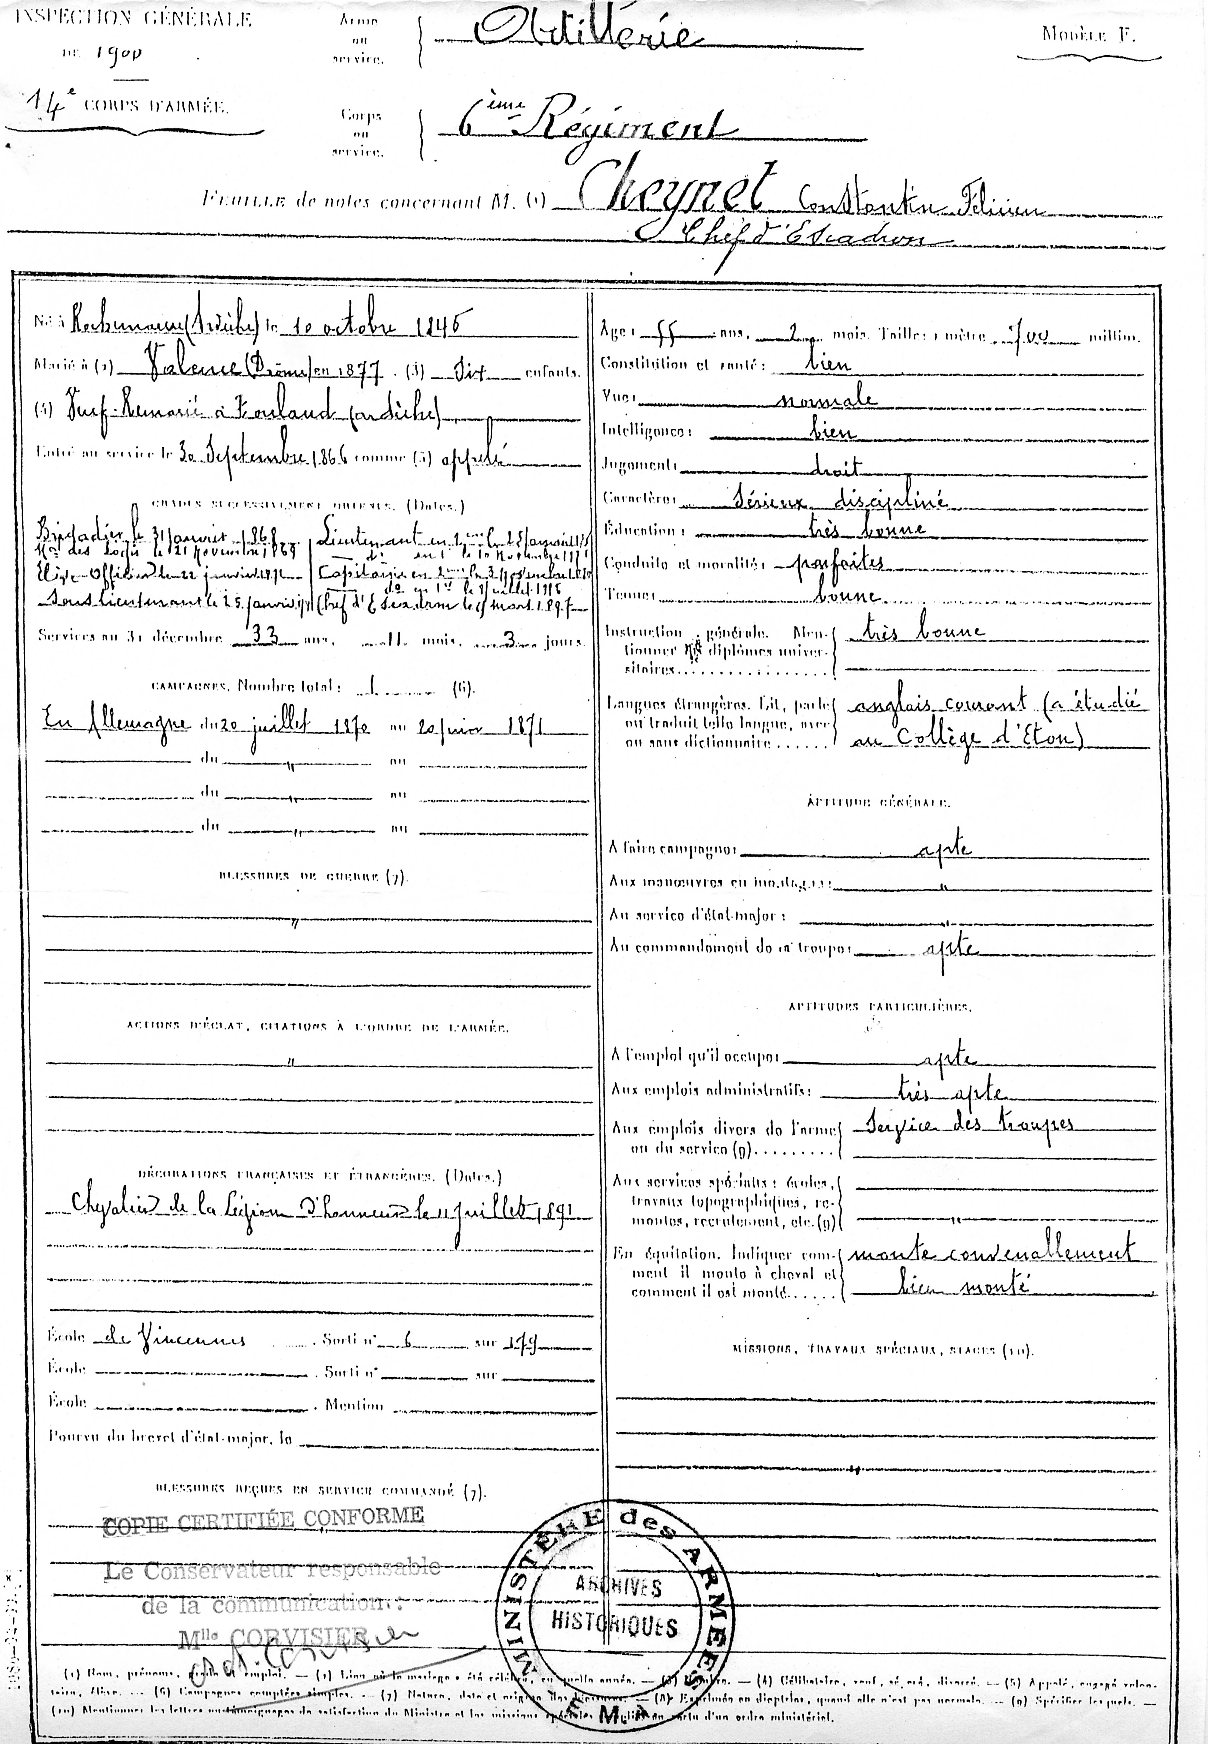 INSPECTION GÉNÉRALE
DE 1900
14e CORPS D'ARMÉE.
Arme
ou
service.
Artillerie
MODÈLE F.
Corps
ou
service.
6ème Régiment
FEUILLE de notes concernant M. (1) Cheynet Constantin
Chef d'Escadron
Né à Rochemaure (Ardèche) le 10 octobre 1845
Marié à (2) Valence (Drôme) en 1877. (3) Six enfants.
(4) Veuf-Remarié à (Ardèche)
Entré au service le 30 Septembre 1866 comme (5) appelé
GRADES SUCCESSIVEMENT OBTENUS. (Dates.)
Brigadier le 31 janvier 1868
Mal des logis le 21 Novembre 1869
Elève Officier le 22 janvier
Sous lieutenant le 25 janvier
Lieutenant en 2me le 25 janvier
en 1er le 10 Novembre
Capitaine en 2me le 3 Novembre
do en 1er le juillet
Chef d'Escadron le mars 1897
Services au 31 décembre 33 ans, 11 mois, 3 jours.
CAMPAGNES. Nombre total : 1 (6).
En Allemagne du 20 juillet 1870 au 20 juin 1871
du " au
du " au
du " au
BLESSURES DE GUERRE (7).
"
ACTIONS D'ÉCLAT, CITATIONS À L'ORDRE DE L'ARMÉE.
"
DÉCORATIONS FRANÇAISES ET ÉTRANGÈRES. (Dates.)
Chevalier de la Légion d'honneur le 11 juillet 1891
École de Vincennes . Sorti n° 6 sur 179
École . Sorti n° sur
École . Mention
Pourvu du brevet d'état-major, le
BLESSURES REÇUES EN SERVICE COMMANDÉ (7).
COPIE CERTIFIÉE CONFORME
Le Conservateur responsable
de la communication :
Mlle CORVISIER
Age : 55 ans, 2 mois. Taille : 1 mètre 700 millim.
Constitution et santé : bien
Vue : normale
Intelligence : bien
Jugement : droit
Caractère : Sérieux discipliné
Éducation : très bonne
Conduite et moralité : parfaites
Tenue : bonne
Instruction générale. Men-
tionner les diplômes univer-
sitaires
très bonne
Langues étrangères. Lit, parle
ou traduit telle langue, avec
ou sans dictionnaire
anglais courant (a étudié
au Collège d'Eton)
APTITUDE GÉNÉRALE.
A faire campagne : apte
Aux manœuvres en montagne : "
Au service d'état-major : "
Au commandement de la troupe : apte
APTITUDES PARTICULIÈRES.
A l'emploi qu'il occupe : apte
Aux emplois administratifs : très apte
Aux emplois divers de l'arme
ou du service (9)
Service des troupes
Aux services spéciaux : écoles,
travaux topographiques, re-
montes, recrutement, etc. (9)
"
En équitation. Indiquer com-
ment il monte à cheval et
comment il est monté
monte convenablement
bien monté
MISSIONS, TRAVAUX SPÉCIAUX, STAGES (10).
"
MINISTÈRE des ARMÉES
ARCHIVES
HISTORIQUES
E.M.A
(1) Nom, prénoms, grade et emploi. — (2) Lieu où le mariage a été célébré, en quelle année. — (3) Nombre. — (4) Célibataire, veuf, séparé, divorcé. — (5) Appelé, engagé volon-
taire, élève. — (6) Campagnes comptées simples. — (7) Nature, date et origine des blessures. — (8) Exprimée en dioptries, quand elle n'est pas normale. — (9) Spécifier lesquels. —
(10) Mentionner les lettres ou témoignages de satisfaction du Ministre et les missions spéciales en vertu d'un ordre ministériel.